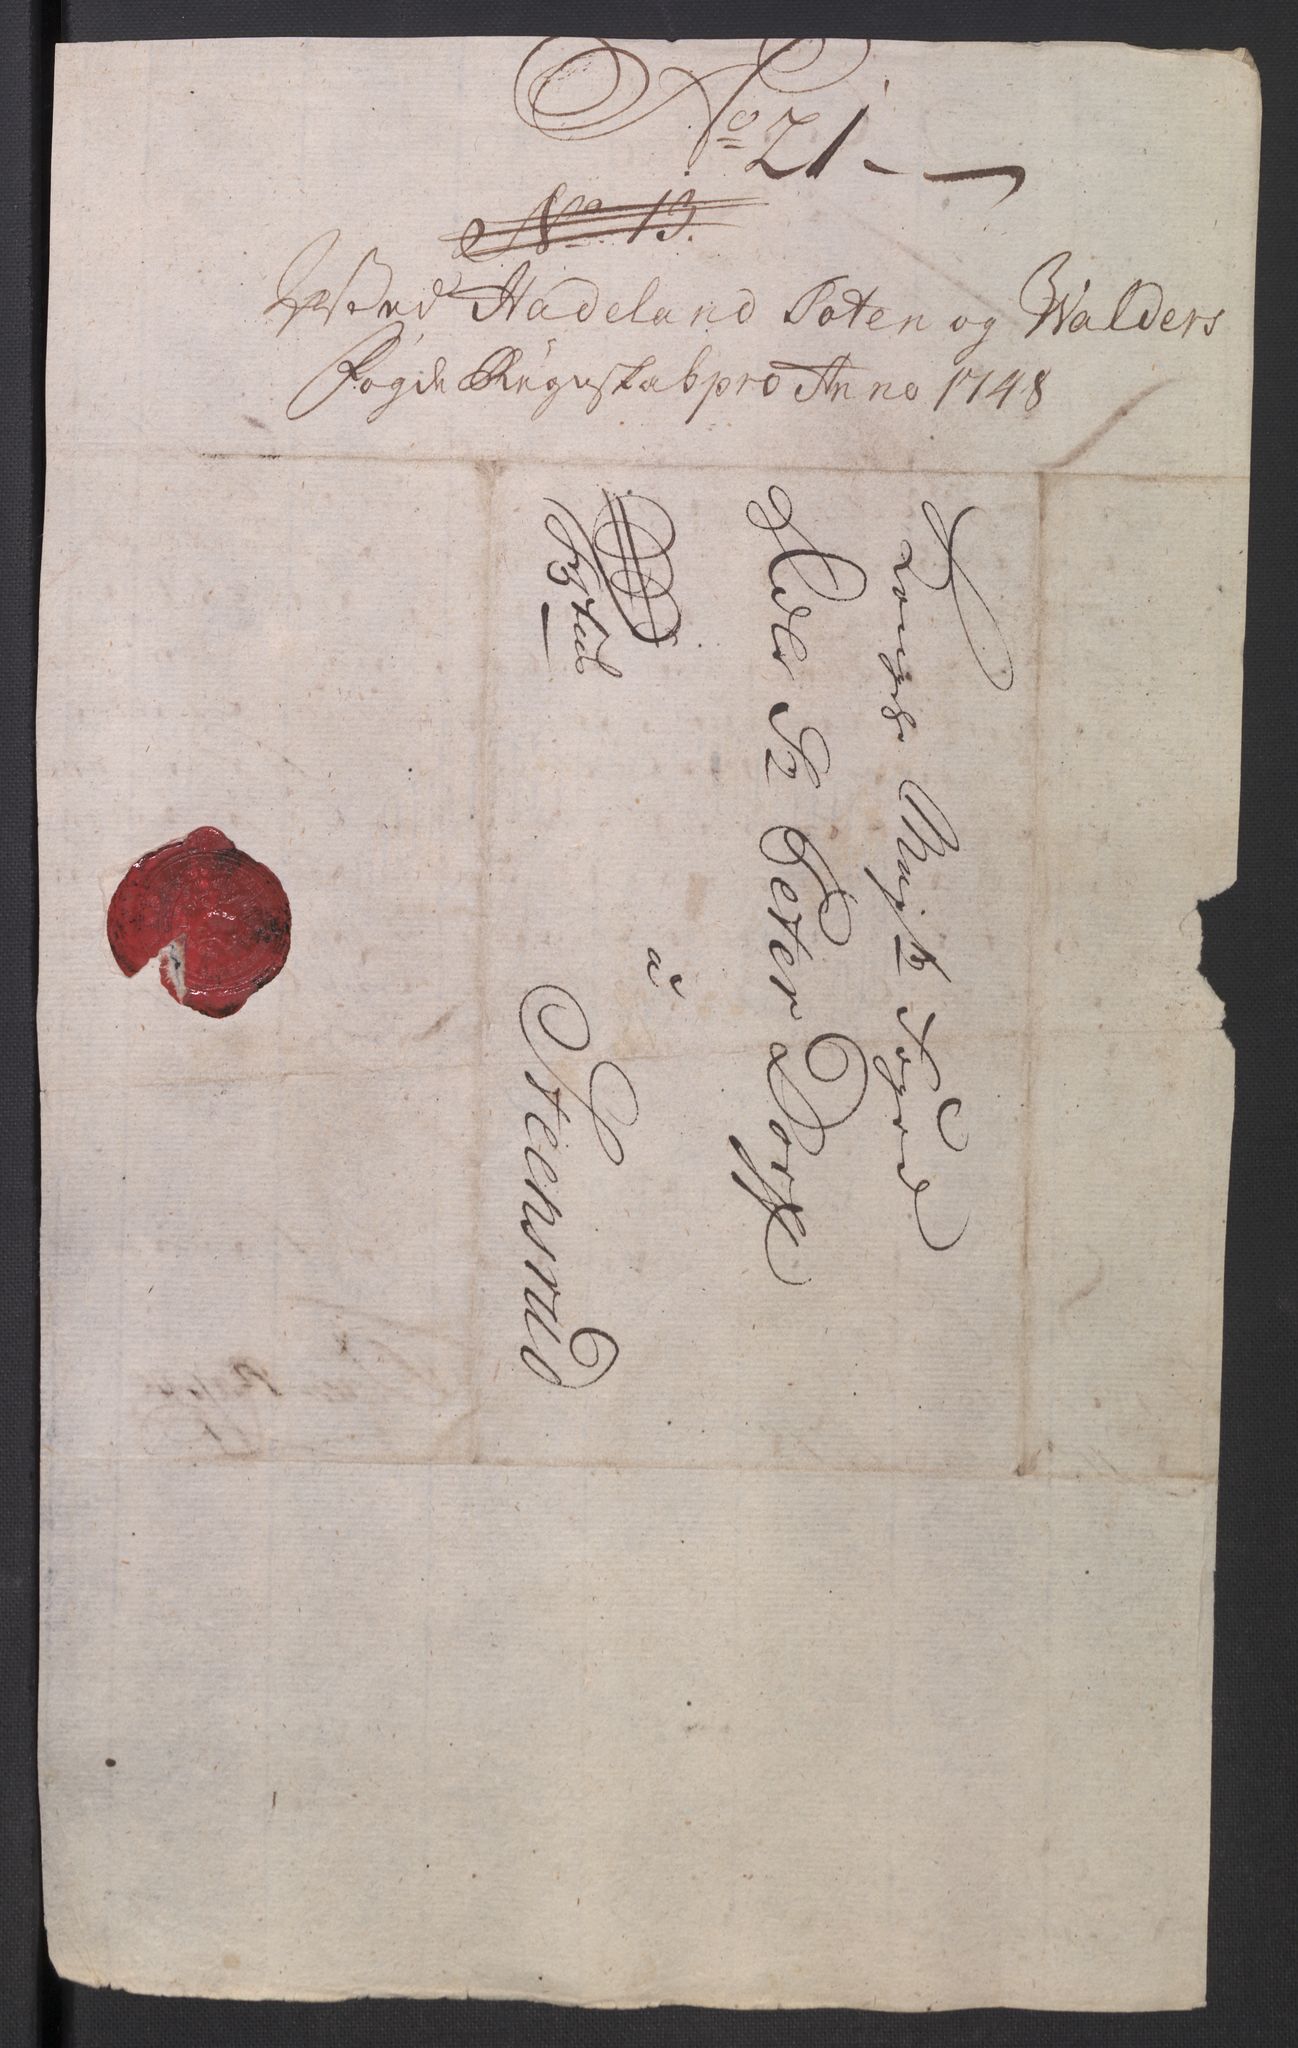 No 21
No 13.
Ved Hadeland Toten og Walders
Fogde Regnskab pro Anno 1748
Kongl Mayst Foged
Peter Dorff
a
Steensrud